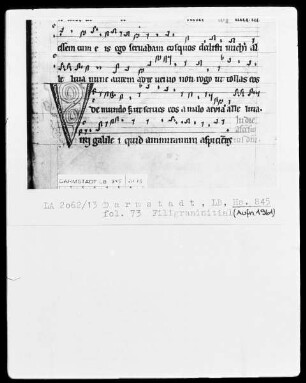 essem cum eis ego servabam eos quos dedisti michi al
le luia nunc autem ad te venio non rogo ut tollas eos
de mundo set ut serves eos a malo alleluia
In die
Viri galilei quid ammiramini aspicientes
DARMSTADT LB 845
LA 2062/13 Darmstadt, LB, Hs. 845
fol. 73 Filigraninitial (Aufn 1961)